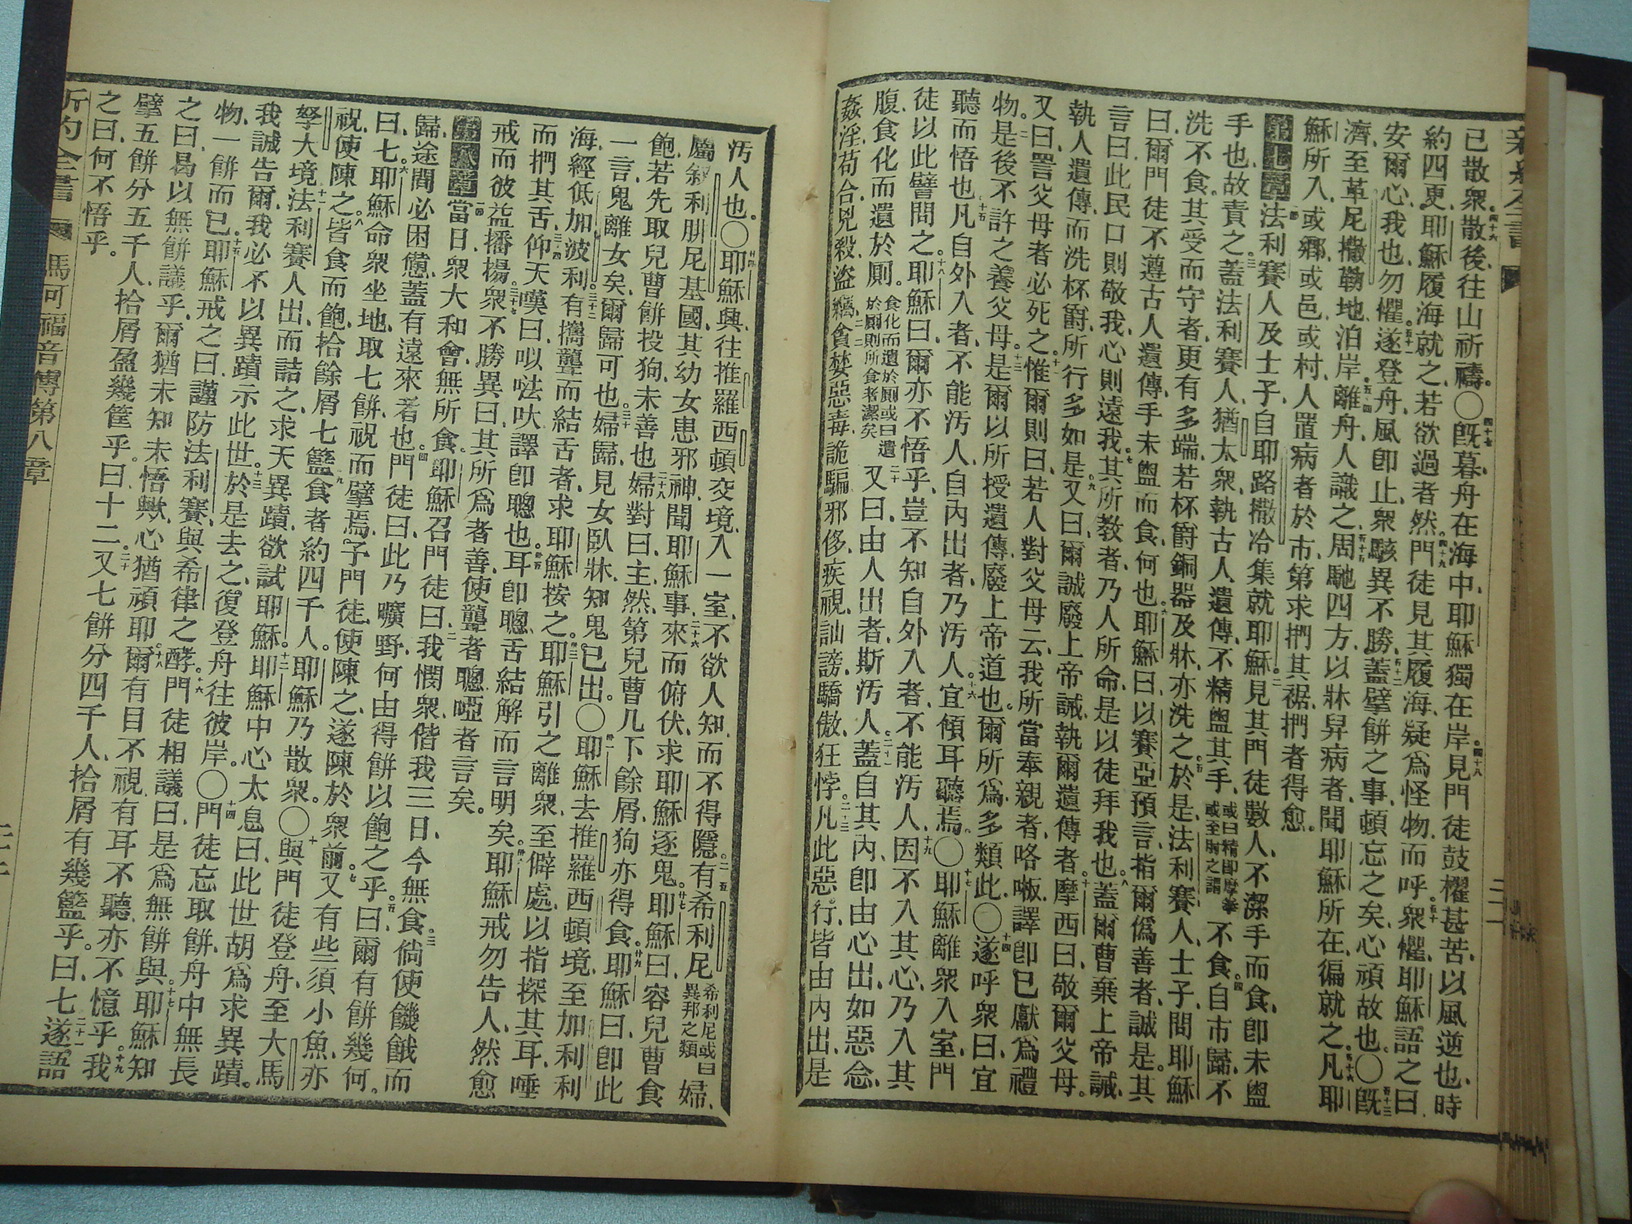 已散衆散後往山祈禱〇既暮舟在海中耶穌獨在岸見門徒鼓櫂甚苦以風逆也時
約四更耶穌履海就之若欲過者然門徒見其履海疑爲怪物而呼衆懼耶穌語之曰
安爾心我也勿懼遂登舟風卽止衆駭異不勝蓋擘餅之事頓忘之矣心頑故也〇既
濟至革尼撒勒地泊岸離舟人識之周馳四方以牀舁病者聞耶穌所在徧就之凡耶
穌所入或鄉或邑或村人置病者於市第求捫其裾捫者得愈
第七章法利賽人及士子自耶路撒冷集就耶穌見其門徒數人不潔手而食卽未盥
手也故責之蓋法利賽人猶太衆執古人遺傳不精盥其手或曰精卽摩拳或至肘之謂不食自市歸不
洗不食其受而守者更有多端若杯爵銅器及牀亦洗之於是法利賽人士子問耶穌
曰爾門徒不遵古人遺傳手未盥而食何也耶穌曰以賽亞預言指爾僞善者誠是其
言曰此民口則敬我心則遠我其所敎者乃人所命是以徒拜我也蓋爾曹棄上帝誡
執人遺傳而洗杯爵所行多如是又曰爾誠廢上帝誡執爾遺傳者摩西曰敬爾父母
又曰詈父母者必死之惟爾則曰若人對父母云我所當奉親者咯嘁譯卽已獻爲禮
物是後不許之養父母是爾以所授遺傳廢上帝道也爾所爲多類此〇遂呼衆曰宜
聽而悟也凡自外入者不能汚人自內出者乃汚人宜傾耳聽焉〇耶穌離衆入室門
徒以此譬問之耶穌曰爾亦不悟乎豈不知自外入者不能汚人因不入其心乃入其
腹食化而遺於厠食化而遺於厠或曰遺於厠則所食者潔矣又曰由人出者斯汚人蓋自其內卽由心出如惡念
姦淫苟合兇殺盜竊貪婪惡毒詭騙邪侈疾視訕謗驕傲狂悖凡此惡行皆由內出是
汚人也〇耶穌興往推羅西頓交境入一室不欲人知而不得隱有希利尼希利尼或曰異邦之類婦
屬敍利腓尼基國其幼女患邪神聞耶穌事來而俯伏求耶穌逐鬼耶穌曰容兒曹食
飽若先取兒曹餅投狗未善也婦對曰主然第兒曹几下餘屑狗亦得食耶穌曰卽此
一言鬼離女矣爾歸可也婦歸見女臥牀知鬼已出〇耶穌去推羅西頓境至加利利
海經低加波利有攜聾而結舌者求耶穌按之耶穌引之離衆至僻處以指探其耳唾
而捫其舌仰天嘆曰㕥㕸吠譯卽聰也耳卽聰舌結解而言明矣耶穌戒勿吿人然愈
戒而彼益播揚衆不勝異曰其所爲者善使聾者聰啞者言矣
第八章當日衆大和會無所食耶穌召門徒曰我憫衆偕我三日今無食倘使饑餓而
歸途間必困憊蓋有遠來者也門徒曰此乃曠野何由得餅以飽之乎曰爾有餅幾何
曰七耶穌命衆坐地取七餅祝而擘焉予門徒使陳之遂陳於衆前又有些須小魚亦
祝使陳之皆食而飽拾餘屑七籃食者約四千人耶穌乃散衆〇與門徒登舟至大馬
孥大境法利賽人出而詰之求天異蹟欲試耶穌耶穌中心太息曰此世胡爲求異蹟
我誠吿爾我必不以異蹟示此世於是去之復登舟往彼岸〇門徒忘取餅舟中無長
物一餅而已耶穌戒之曰謹防法利賽與希律之酵門徒相議曰是爲無餅與耶穌知
之曰曷以無餅議乎爾猶未知未悟歟心猶頑耶爾有目不視有耳不聽亦不憶乎我
擘五餅分五千人拾屑盈幾筐乎曰十二又七餅分四千人拾屑有幾籃乎曰七遂語
之曰何不悟乎
新約全書 馬可福音傳第八章